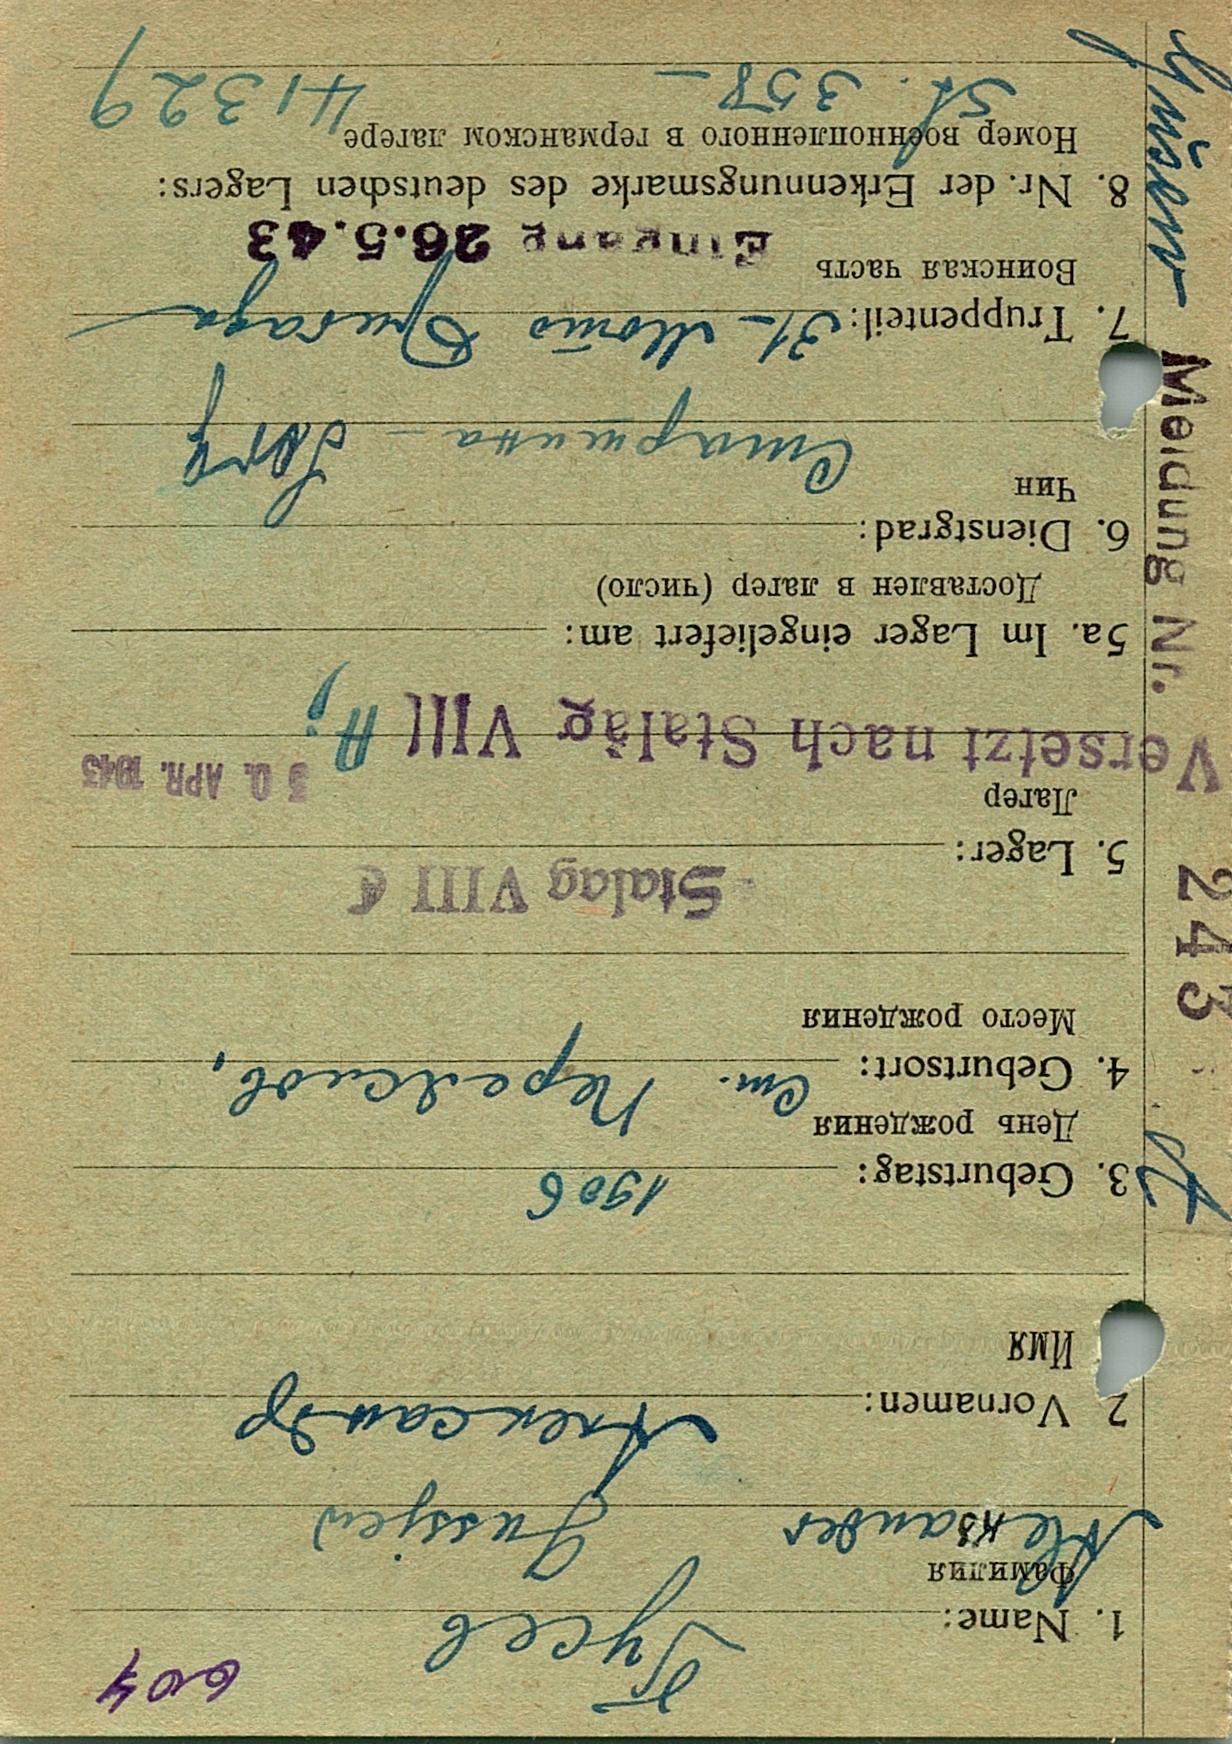 604
Гусев
1. Name:
Фамилия
Alexander Gussjew
Александр
2. Vornamen:
Имя
1906
3. Geburtstag:
День рождения
ст.
4. Geburtsort:
Место рождения
Stalag VIII C
5. Lager:
Лагер
30. APR. 1943
Versetzt nach Stalag VIII A;
5a. Im Lager eingeliefert am:
Доставлен в лагер (число)
6. Dienstgrad:
Чин
Старшина –
7. Truppenteil: 31 – Мото Бригада
Воинская часть
Eingang 26.5.43
8. Nr. der Erkennungsmarke des deutschen Lagers:
Номер военнопленного в германском лагере
St. 358 – 41329
Meldung Nr. 243